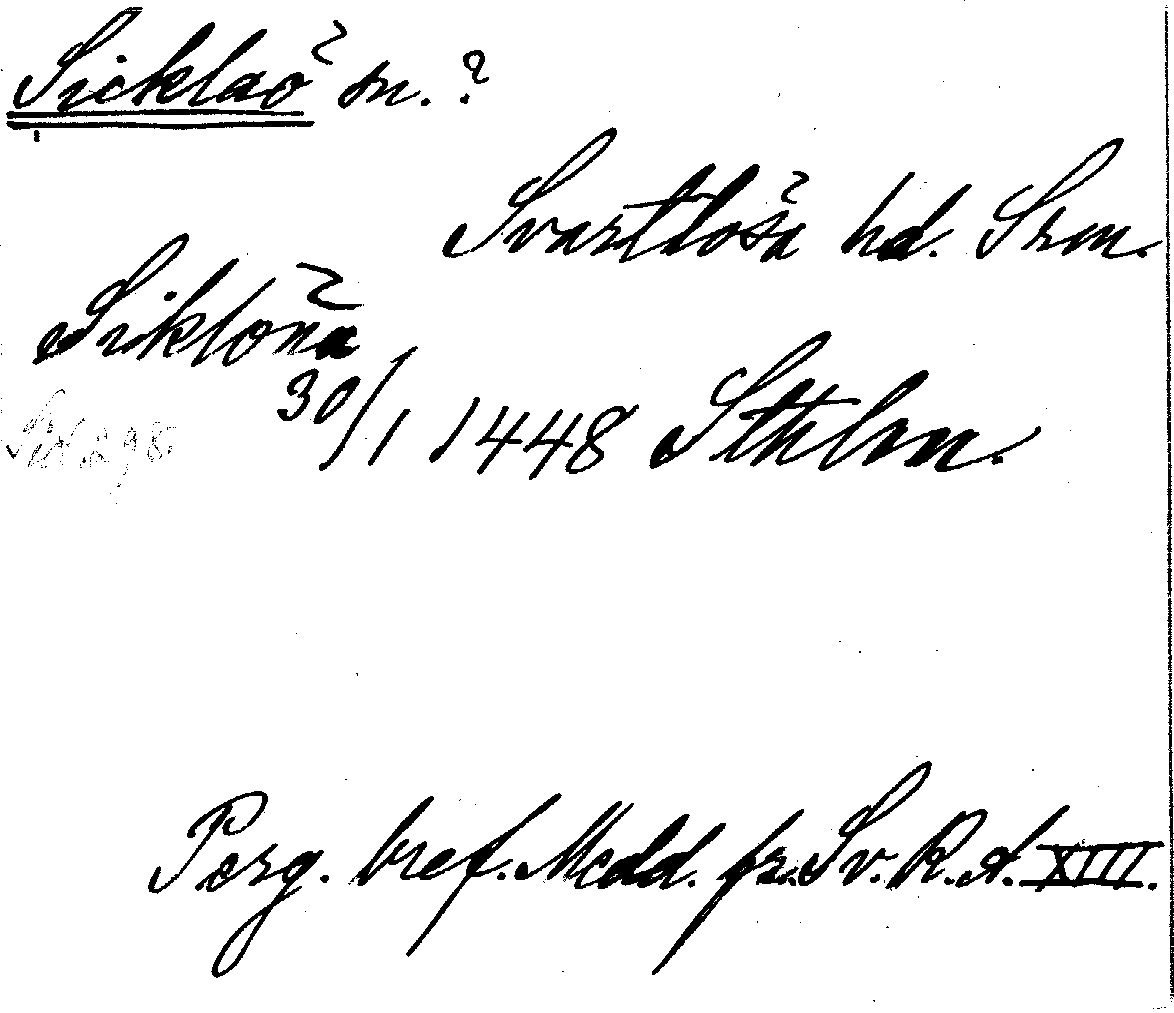 Sicklaö sn.?
Svartlösa hd. Srm.
Siklöna
30/1 1448 Sthlm.
Sid. 298.
Perg. bref. Medd. fr. Sv. R. A. XIII.